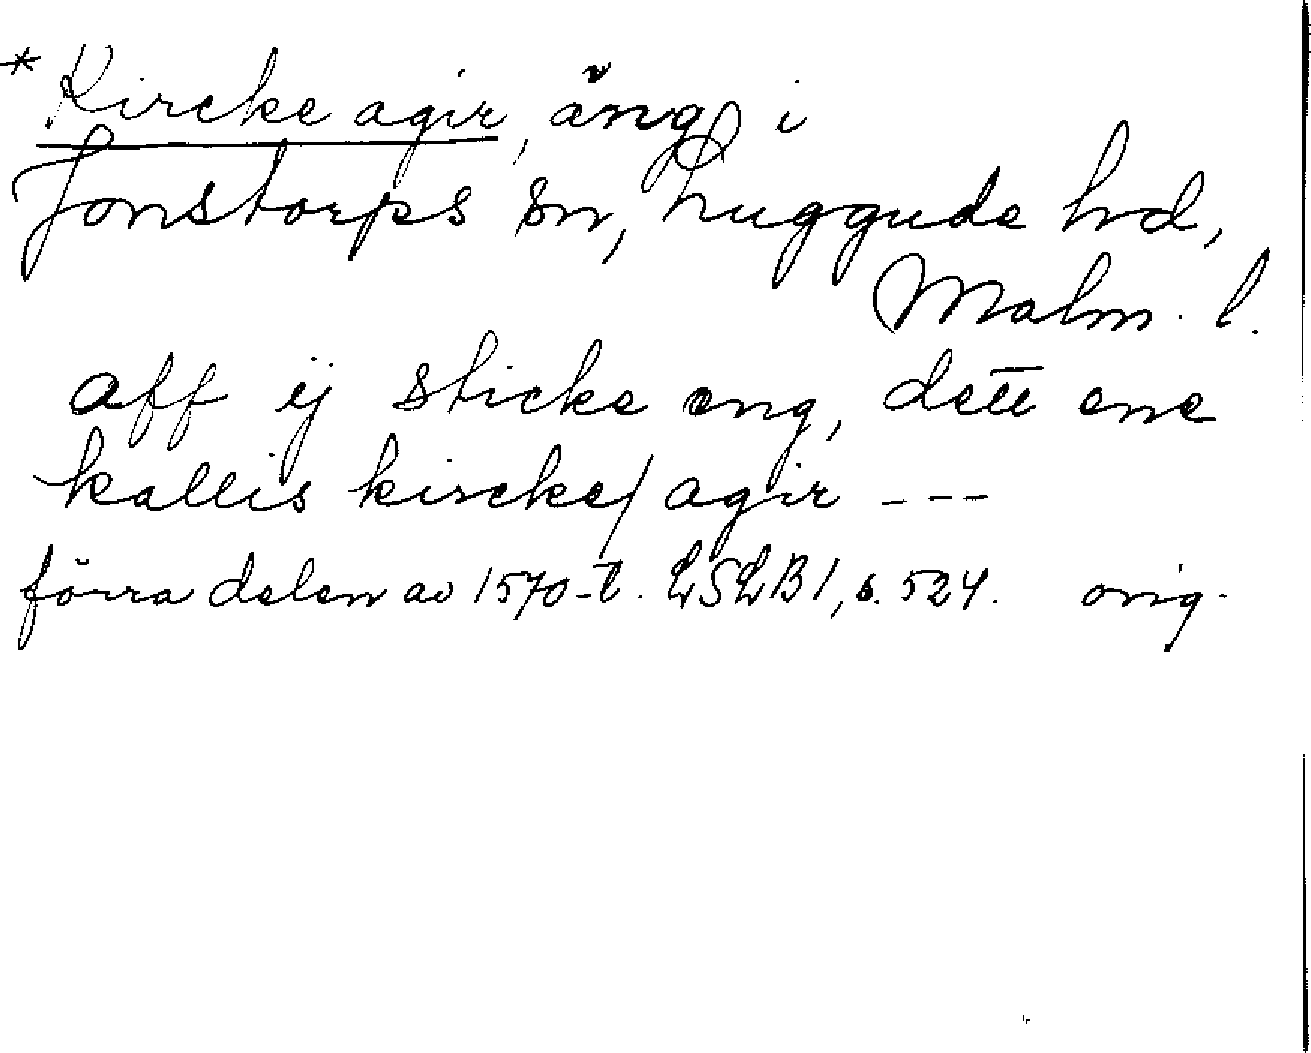 * Kircke agir, äng i
Jonstorps sn, Luggude hd,
Malm. l.
aff ij sticke eng, dett ene
kallis kircke/agir ---
förra delen av 1570-t. LSLB I, s. 524. orig.